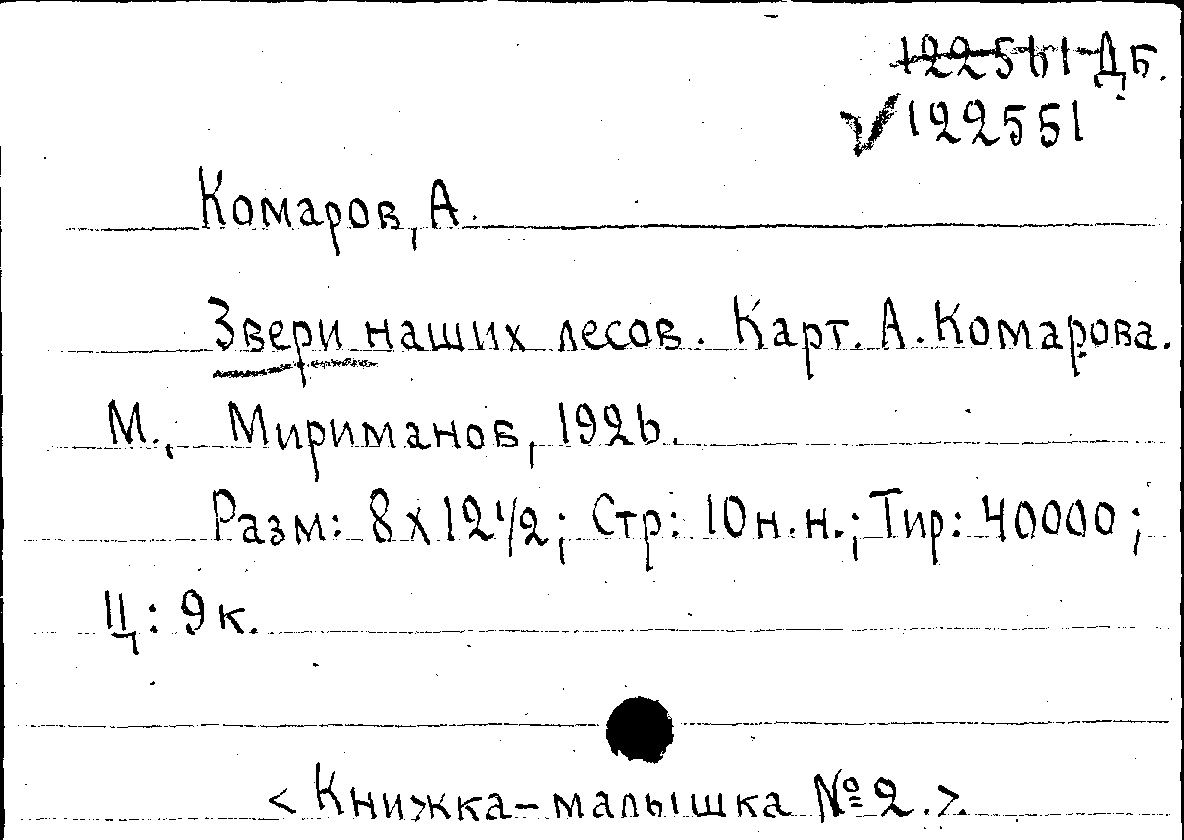 122561 ДБ.
√122551
Комаров, А.
Звери наших лесов. Карт. А. Комарова.
М., Мириманов, 1926.
Разм: 8 х 12 1/2; Стр: 10 н.н.; Тир: 40000;
Ц: 9 к.
< Книжка-малышка № 2.>